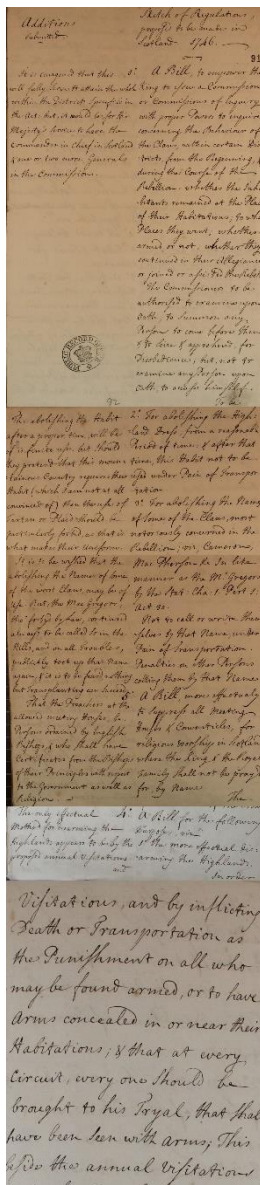 Additions
submitted
It is conceived that this
will fully
within the Districts specified in
the Act: but, it would be for his
Majesty's Service to have the
Commander in Chief in Scotland
& one or two more Generals
in the Commission.
Sketch of Regulations,
proposed to be made in
Scotland 1746.
91
A Bill, to empower the
King to issue a Commission
or Commissions of Inquiry
with proper Powers to inquire
concerning the Behaviour of
the Clans, within certain Dis-
tricts, from the Beginning, &
during the Course of the
Rebellion: whether the Inha-
bitants remained at the Places
of their Habitations; to what
Places they went, whether
armed or not, whether they
continued in their Allegiance
or joined or assisted the Rebels
The Commissioners to be
authorised to examine upon
Oath, to summon any
Person to come before them
Disobedience; but, not to
examine any Person upon
Oath, to accuse himself.
92
The abolishing the Habit
after a proper time, will be
of infinite use: but should
they pretend that this moun-
tainous Country requires their
Habit (which I am not at all
convinced of) then the use of
Tartan or Plaid should be
particularly forbid as that is
what makes their Uniform.
It is to be wished that the
abolishing the Names of some
of the worst Clans may be of
use. But, the Mac Gregors,
tho' forbid by Law, continued
always to be called so in the
Hills, and on all Troubles,
publickly took up that Name
again; & it is to be feared nothing
but Transplanting can succeed.
That the Preachers at the
allowed meeting Houses, be
Persons ordained by English
Bishops, & who shall have
Certificates from the Bishops
of their Principles with regard
to the Government as well as
Religion.
2.° For abolishing the High-
land Dress from a reasonable
Period of time; & after that
time, this Habit not to be
used under Pain of Transpor-
tation.
3.° For abolishing the Names
of some of the Clans, most
notoriously concerned in the
Rebellion; viz. Camerons,
Mac Phersons &c. In like
manner as the Mc.Gregors
by the Stat. Cha. 1. Parl. 1.
Act 30.
Not to call or write them-
selves by that Name, under
Pain of Transportation.
Penalties on other Persons
calling them by that Name
A Bill more effectualy
to suppress all Meeting
Houses & Conventicles, for
religious worship in Scotland
where the King & the Royal
Family shall not be pray'd
for by Name.
The
The only effectual
Method for disarming the
Highlands appears to be by the
proposed annual Visitations
and
4.° A Bill for the following
Purposes, viz.
1.st the more effectual dis-
arming the Highlands.
In order
Visitations, and by inflicting
Death or Transportation as
the Punishment on all who
may be found armed, or to have
Arms concealed in or near their
Habitations; & that at every
Circuit, every one should be
brought to his Tryal, that shal
have been seen with arms; This
beside the annual Visitations